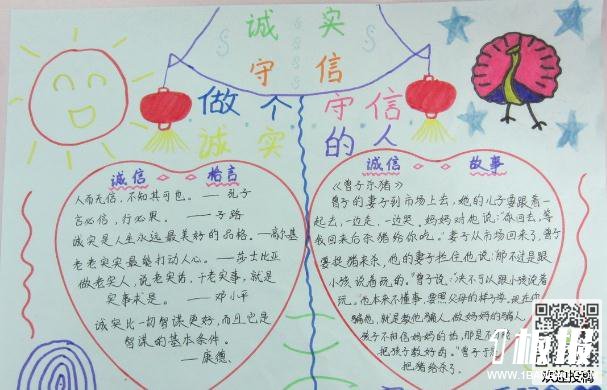 诚实
守信
做个守信
诚实的人
诚信 格言
人而无信，不知其可也。——孔子
言必信，行必果。——子路
诚实是人生永远最美好的品格。——高尔基
老老实实最能打动人心。——莎士比亚
做老实人，说老实话，干老实事，就是
实事求是。——邓小平
诚实比一切智谋更好，而且它是
智谋的基本条件。
——康德
诚信 故事
《曾子杀猪》
曾子的妻子到市场上去，她的儿子要跟着一
起去，一边走，一边哭。妈妈对他说：“你回去，等
我回来后杀猪给你吃。”妻子从市场回来了，曾子
要捉猪来杀，他的妻子拦住他说：“那不过是跟
小孩说着玩的。”曾子说：“决不可以跟小孩说着
玩。他本来不懂事，要照父母的样子学，现在你
骗他，就是教他骗人。做妈妈的骗人，
孩子不相信妈妈的话，那是不
把孩子教好的。”曾子于
把猪给杀了。
板报